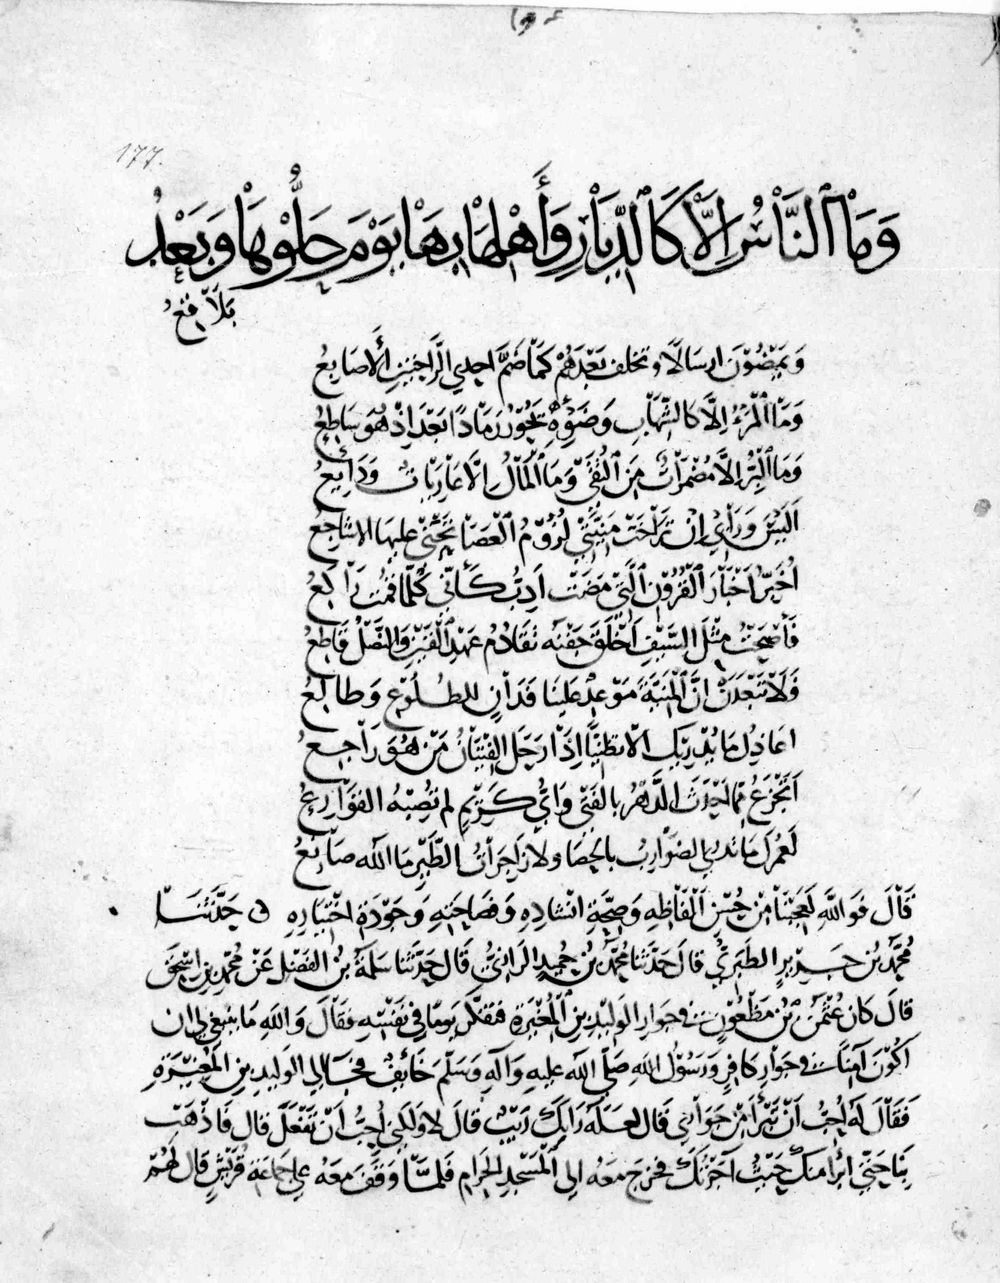 177.
وَمَا ٱلنَّاسُ إِلَّا كَالدِّيَارِ وَأَهْلُهَا بِهَا يَوْمَ حَلُّوْهَا وَبَعْدُ
بَلَاقِعُ
وَيَمْضُوْنَ ارسَالًا ونخلف بَعْدَهُمْ كَمَا ضَمَّ احدي الرَّاحَتين الأصَابعُ
وَمَا ٱلْمَرْءُ اِلَّا كَالشِّهَابِ وَضَوْئِهِ يَحُوْرُ رَمَادًا بَعْدَ اذْ هُوَ سَاطِعُ
وَمَا ٱلبِرُّ اِلَّا مُضْمَرَاتٌ مِنَ ٱلتُّقَى وَمَا ٱلْمَالُ الَّا عَارِيَات وَدَايِعُ
اَلَيْسَ وَرَاْئِي اِنْ تَرَاخَتْ مَنِيَّتِي لُزُوْمُ الْعَصَا تُحْنَى عليهَا الاصَابِعُ
اُخَبِّرُ اَخْبَارَ ٱلقُرُوْنِ ٱلَّتِي مَضَت اَدِبُّ كَأَنِّي كُلَّمَا قُمْتُ رَاكِعُ
فَأَصْبَحْتُ مِثْلَ السَّيْفِ اَخْلَقَ جَفْنَه تَقَادُمُ عَهْدِ ٱلقَيْنِ وَالنَّصْلُ قَاطِعُ
فَلَا تَبْعَدَنْ اِنَّ ٱلْمَنِيَّةَ مَوْعِدٌ علينا فَدَانٍ للطُّلُوْعِ وَطَالِعُ
اعَاذِلَ مَا يُدْرِيْكِ الا تظَنِّيًا اِذَا رَحَلَ الفِتْيَانُ مَنْ هُوَ رَاجِعُ
اَتَجْزَعُ مما اَحْدَثَ الدَّهْرُ بِالفَتَى وَايُّ كَرِيْمٍ لم تُصِبْهُ القَوَارِعُ
لَعَمْرُكَ مَا تَدْرِي الضَّوَارِبُ بِالحَصَا ولا زَاجِرَاتُ الطَّيْرِ مَا الله صَانِعُ
قَالَ فَوَاللّٰهِ لَعَجِبْنَا مِنْ حُسْنِ اَلْفَاظِهِ وَصِحَّةِ انْشَادِهِ وَفَصَاحَتِهِ وَجَوْدَةِ اخْتِيَارِهِ ن حَدَّثَنَا
مُحَمَّدُ بْنُ جَرِيْرٍ الطَبَرِيُّ قالَ حَدَّثَنَا مُحَمَّدُ بن حُمَيْدٍ الرَّازِيُّ قَالَ حَدَّثَنَا سَلَمَةُ بنُ الفَضْلِ عَنْ مُحَمَّدِ بن اِسْحٰقَ
قالَ كان عُثْمٰنُ بنُ مَظْعُوْنٍ في جِوَارِ الوَلِيْدِ بن ٱلْمُغِيْرَةِ فَفَكَّرَ يَومًا فِي نَفْسِهِ فقَالَ وَاللهِ مَا ينبَغي لي ان
اَكُوْنَ آمِنًا في جِوَارِ كَافِرٍ وَرَسُوْلُ اللهِ صَلَّى الله عليهِ وَآلِهِ وَسَلّمَ خَائِفٌ فجَا الي الوَليدِ بنِ المُغِيْرَةِ
فَقَالَ لَهُ اُحِبُّ اَنْ تَبْرَأَ مِنْ جِوَارِي قَال لعَلَّهُ رَابَكَ رَيْبٌ قالَ لا ولَكنِّي اُحِبُّ اَنْ تَفْعَلَ قال فَاذْهَبْ
بِنَا حَتَّى ابْرَا مِنْكَ حَيْثُ اَجَرْتُكَ فخرَجَ مَعَهُ الي ٱلْمَسْجِدِ الحَرَامِ فَلَمَّا وَقَفَ مَعَهُ علي جَمَاعَةِ قُرَيْشٍ قال لهُمْ